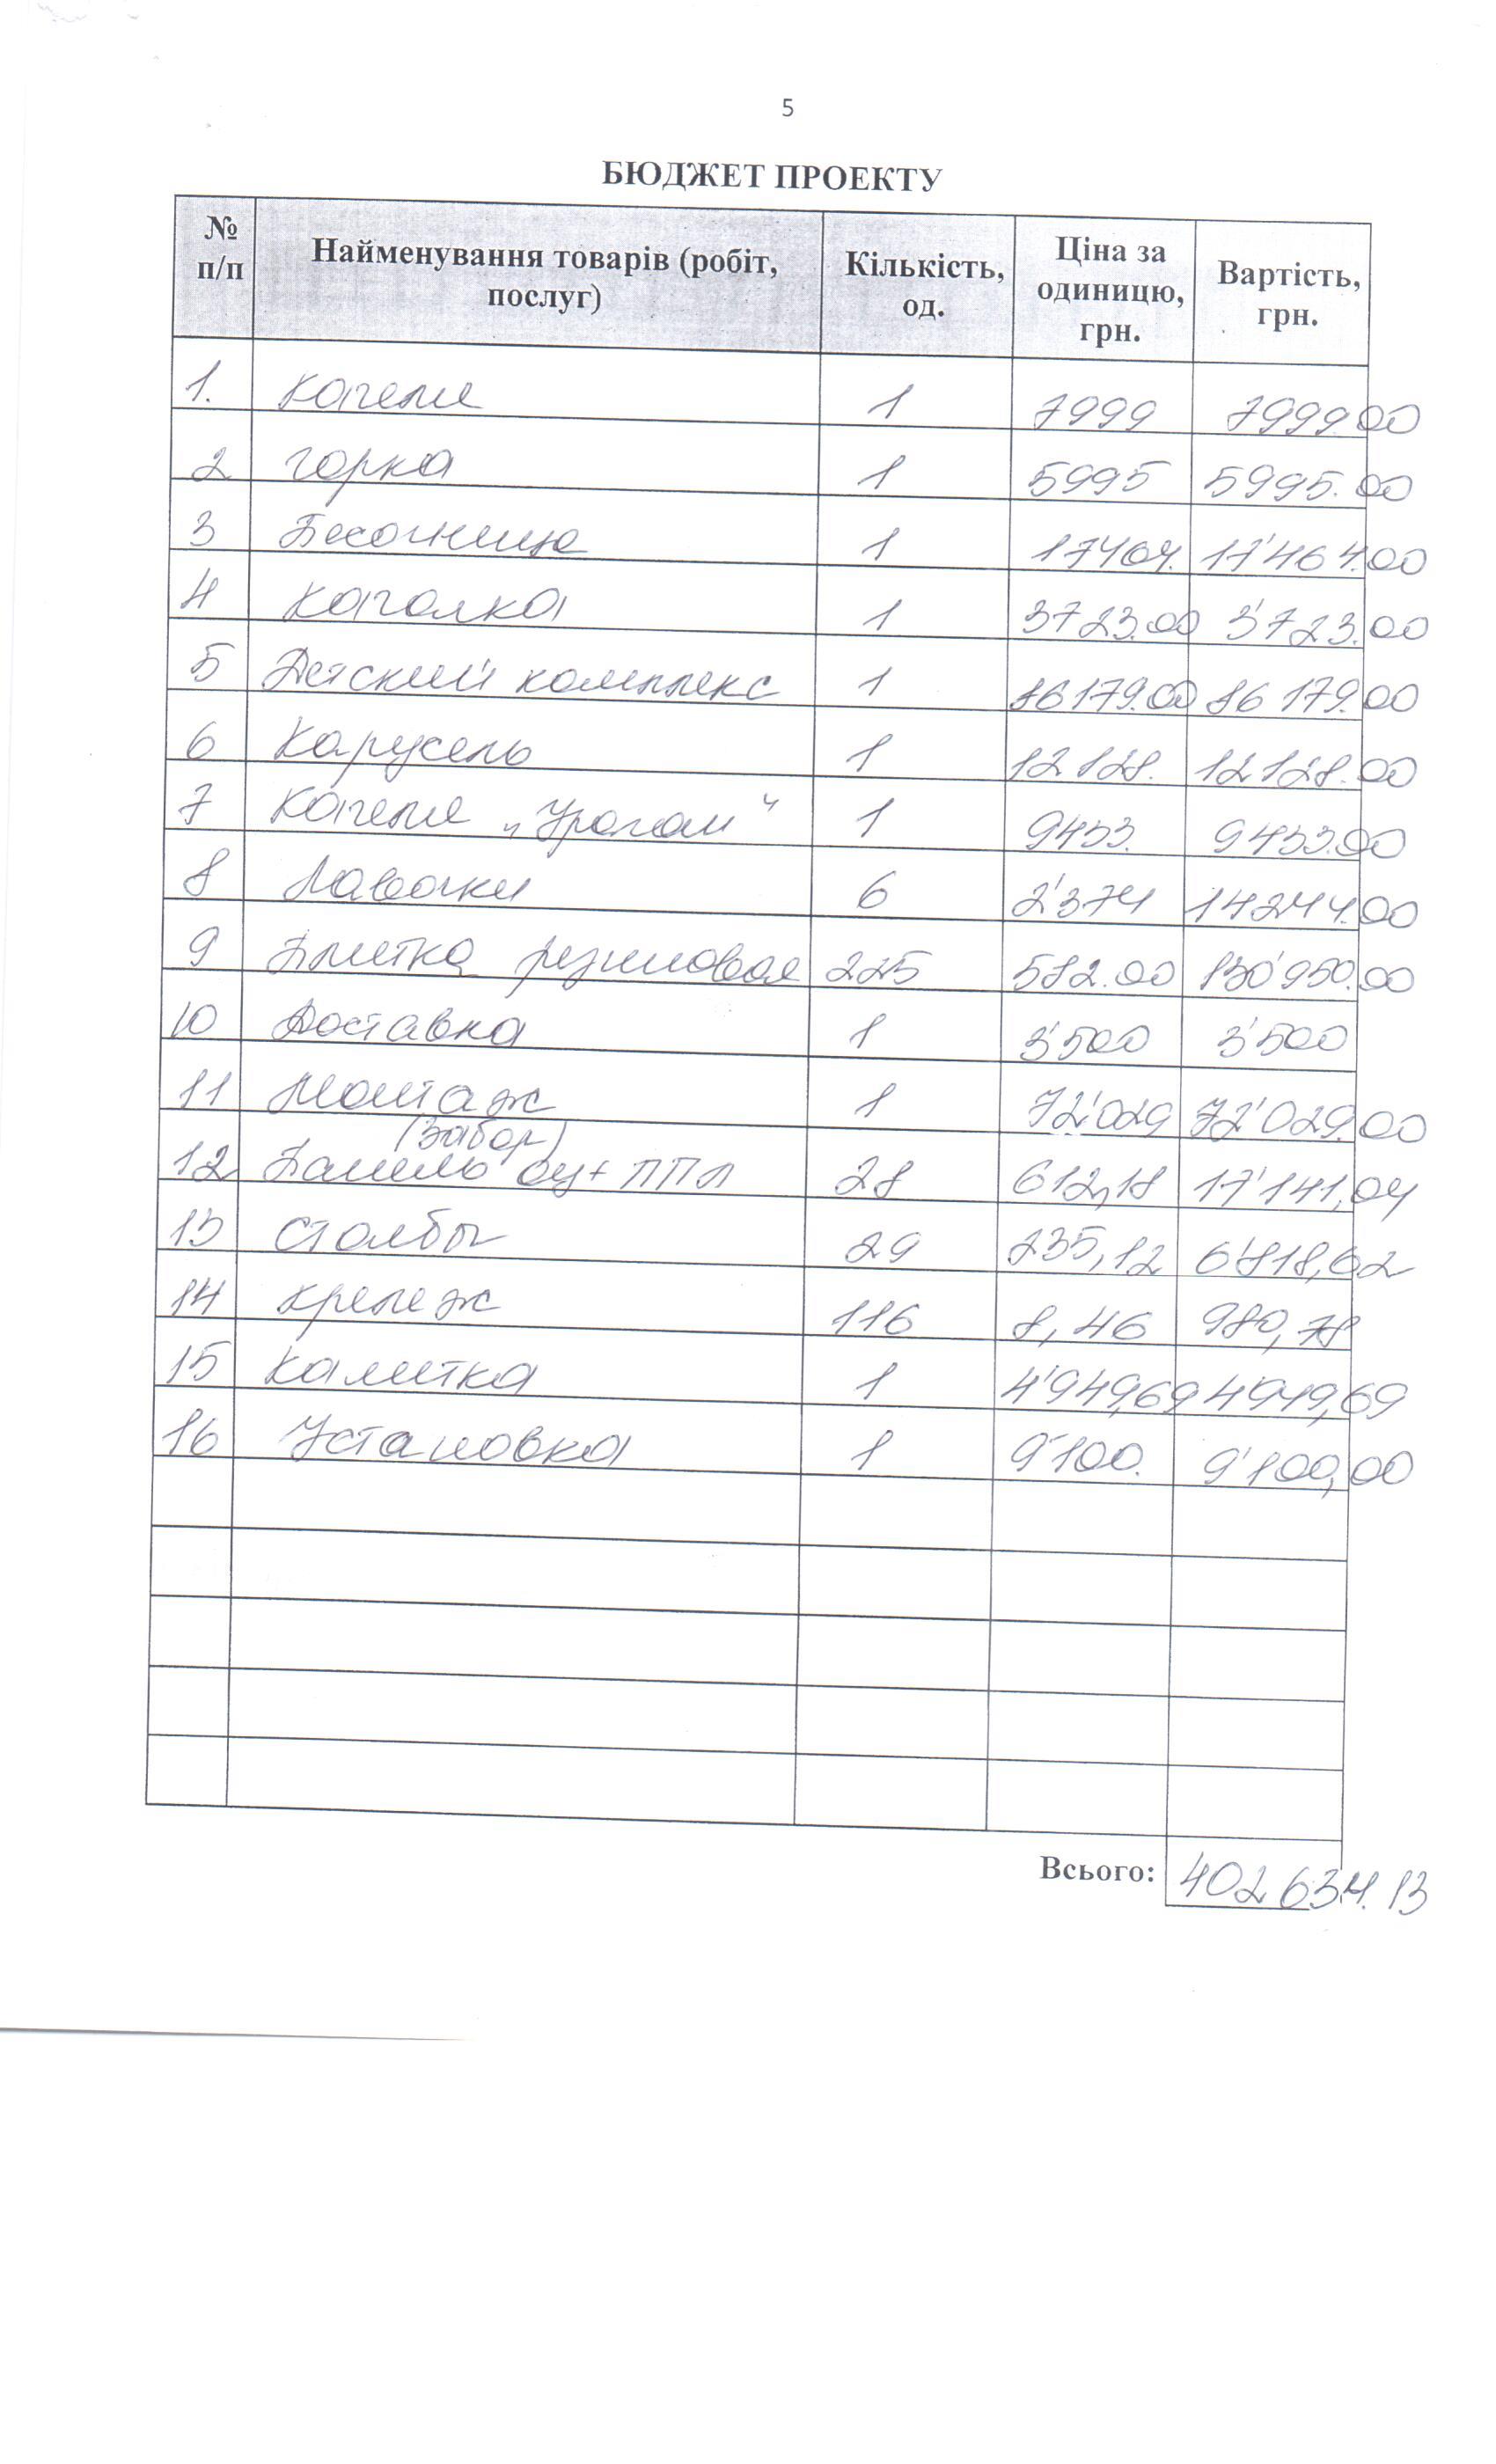 5
БЮДЖЕТ ПРОЕКТУ
№ п/п Найменування товарів (робіт, послуг) Кількість, од. Ціна за одиницю, грн. Вартість, грн.
1. Качели 1 7999 7999.00
2 горка 1 5995 5995.00
3 Песочница 1 17464. 17'464.00
4 Качалка 1 3723.00 3'723.00
5 Детский комплекс 1 86179.00 86 179.00
6 Карусель 1 12128. 12128.00
7 Качели „Ураган“ 1 9453. 9453.00
8 Лавочки 6 2'374 14244.00
9 Плитка резиновая 225 582.00 130'950.00
10 Доставка 1 3'500 3'500
11 Монтаж 1 72'029 72'029.00
(Забор)
12 Панель оц+ ППЛ 28 612,18 17'141,04
13 Столбы 29 235,12 6'818,62
14 крепеж 116 8,46 980,78
15 Калитка 1 4'949,69 4'949,69
16 Установка 1 9'100. 9'100,00
Всього: 402 634.13